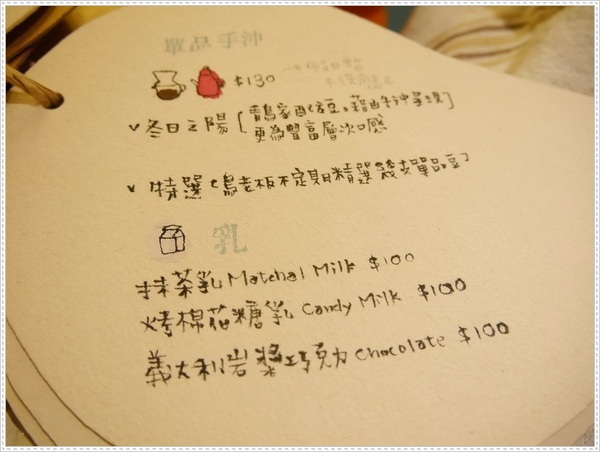 單品手沖
$130
v 冬日之陽 [ 賣鳥家配方豆。藉由手沖呈現
更為豐富層次口感 ]
v 特選 [ 鳥老板不定期精選幾支單品豆 ]
乳
抹茶乳 Matchal Milk $100
烤棉花糖乳 Candy Milk $100
義大利岩漿巧克力 Chocolate $100